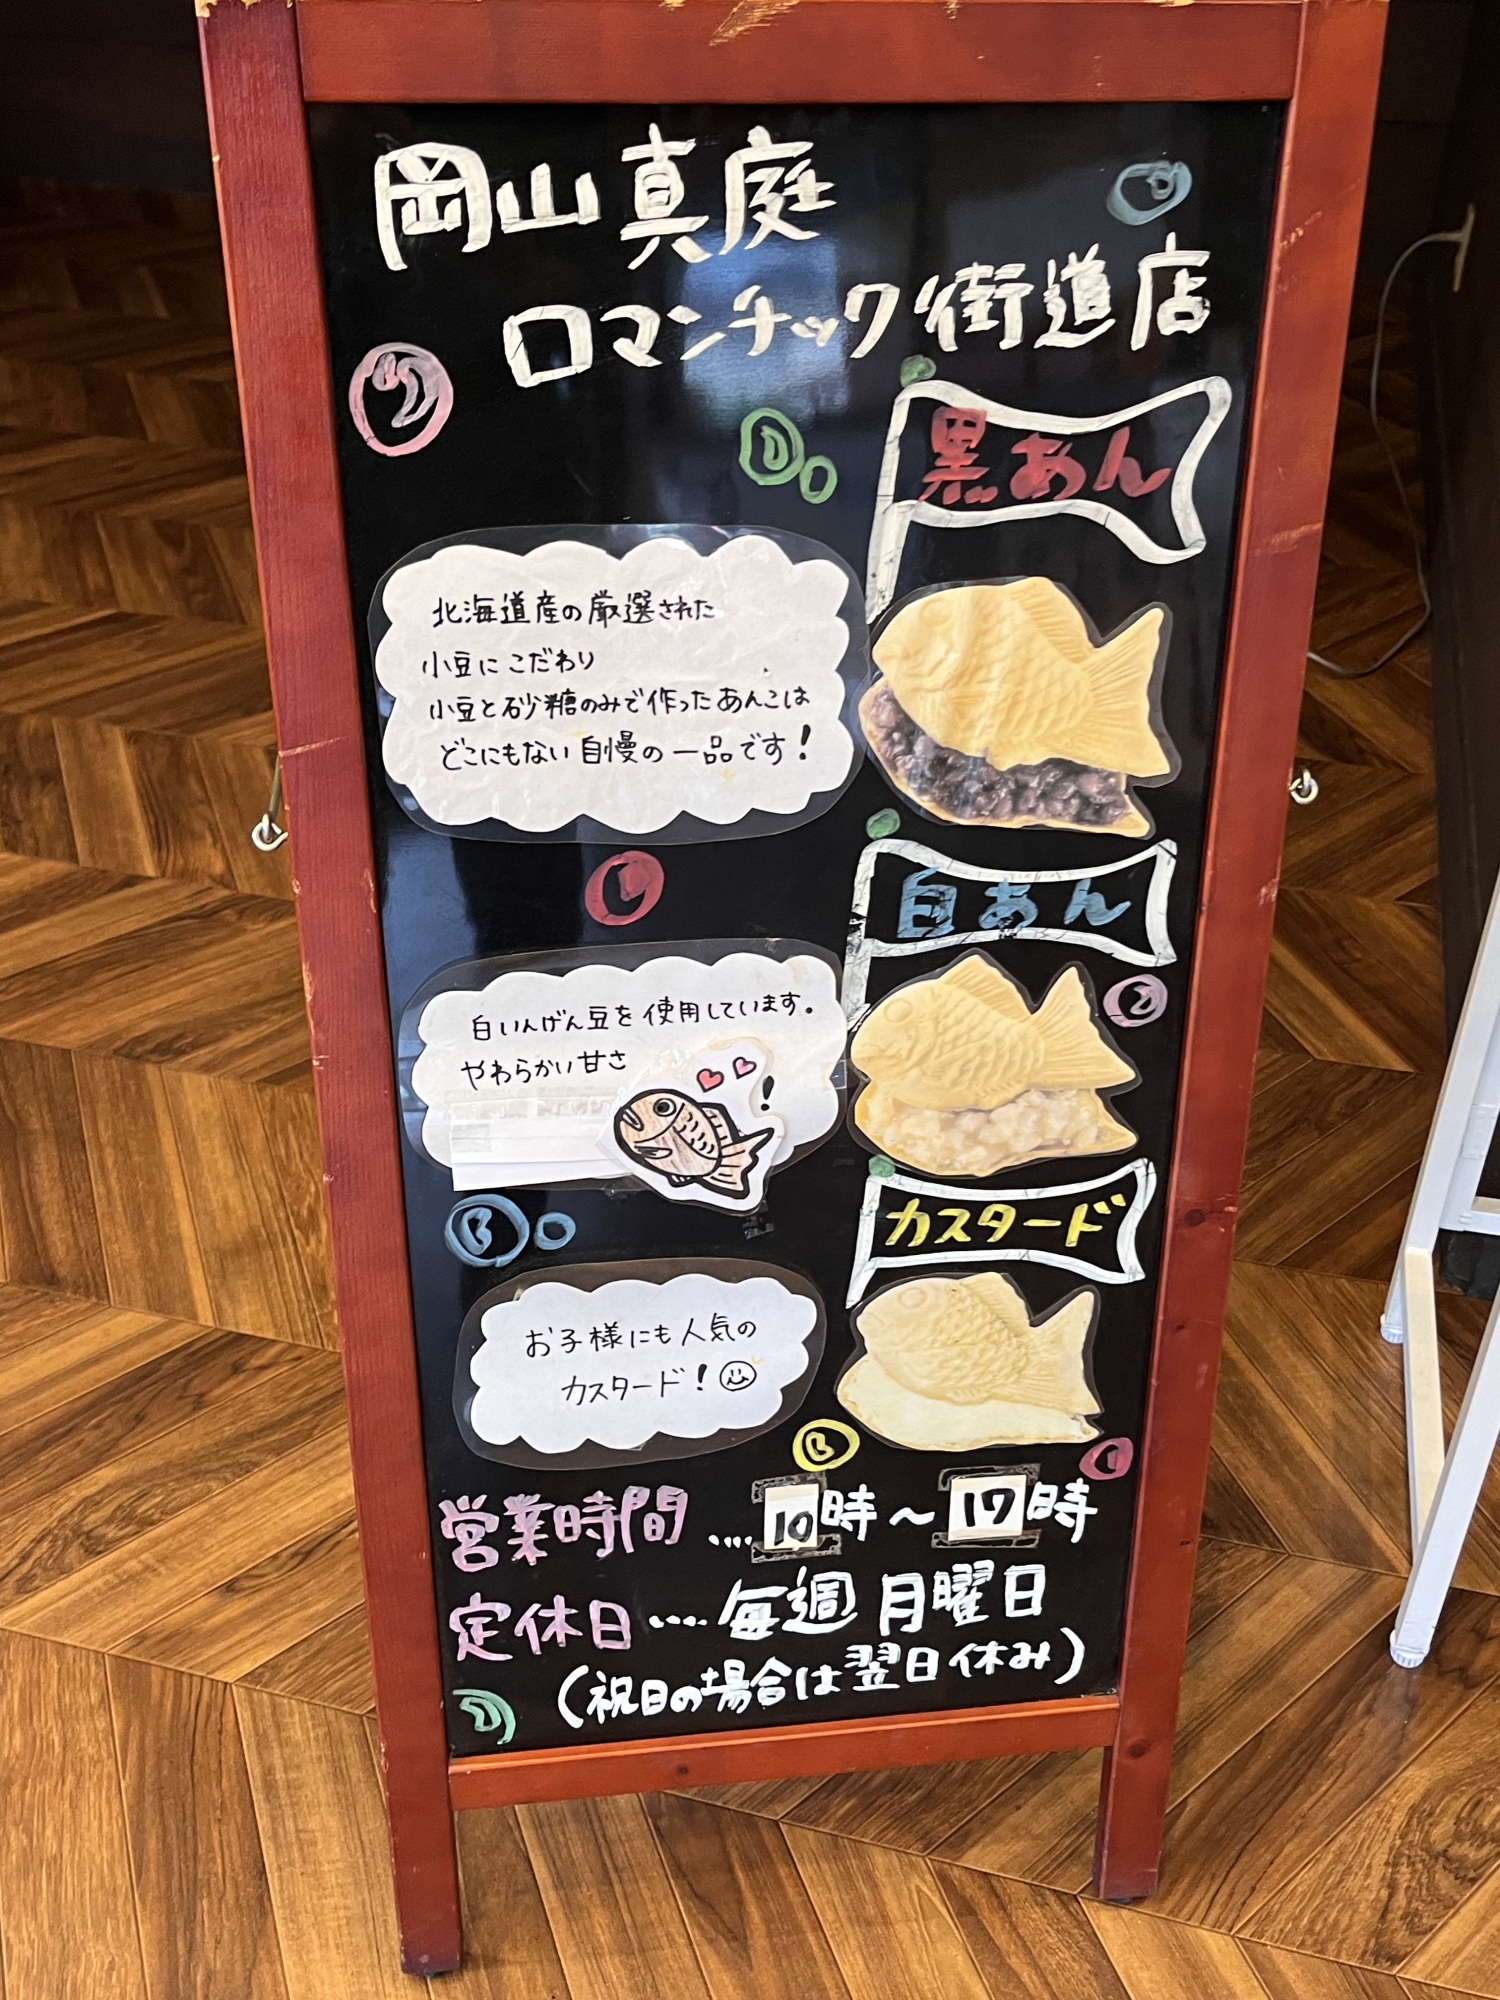 岡山真庭
ロマンチック街道店
黒あん
北海道産の厳選された
小豆にこだわり
小豆と砂糖のみで作ったあんこは
どこにもない自慢の一品です!
白あん
白いんげん豆を使用しています。
やわらかい甘さ
!
カスタード
お子様にも人気の
カスタード!
営業時間....10時〜17時
定休日....毎週月曜日
(祝日の場合は翌日休み)